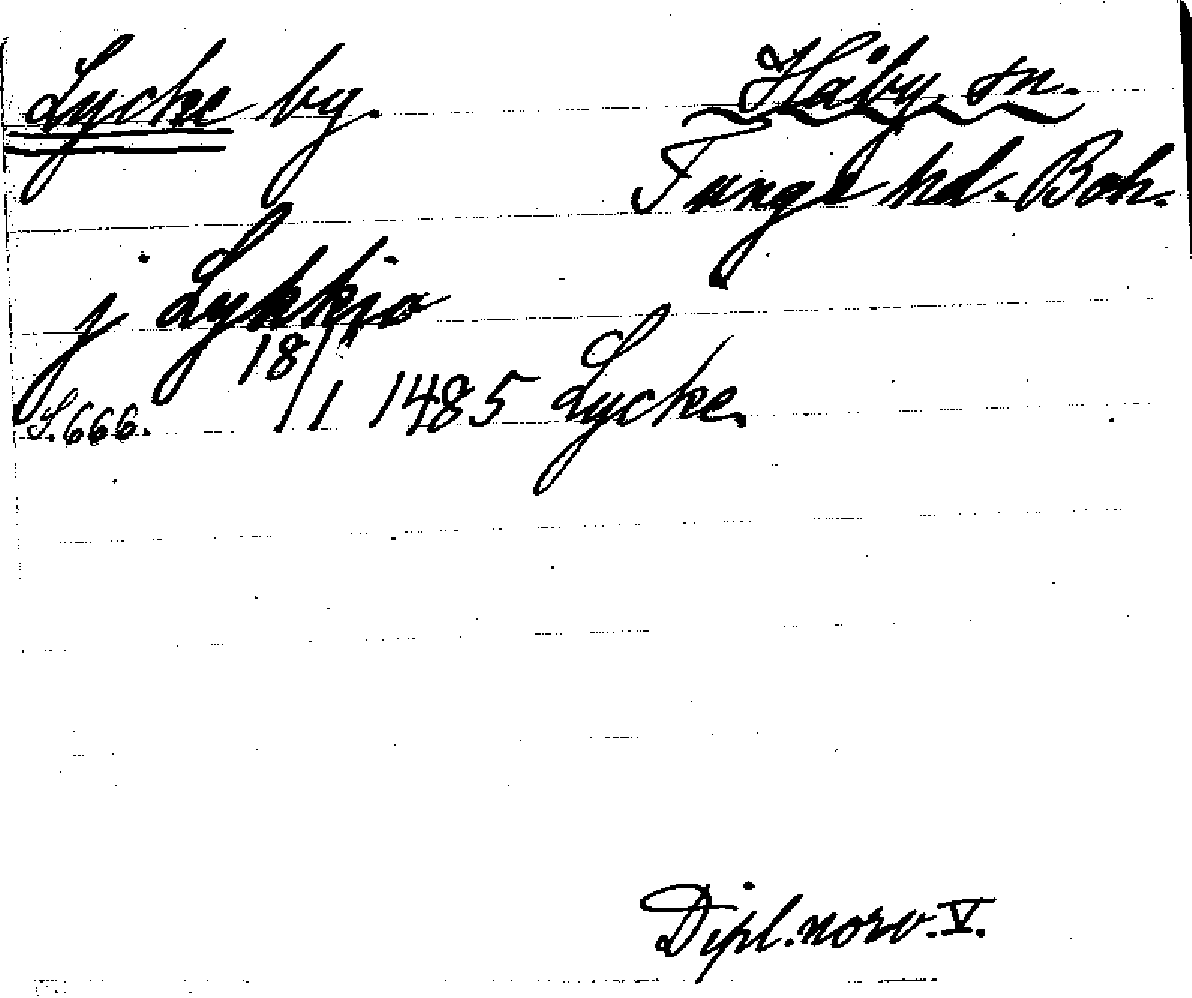 Lycke by. Håby sn.
Tunge hd. Boh.
j Lykkjo
S. 666. 18/1 1485 Lycke.
Dipl. norv. V.